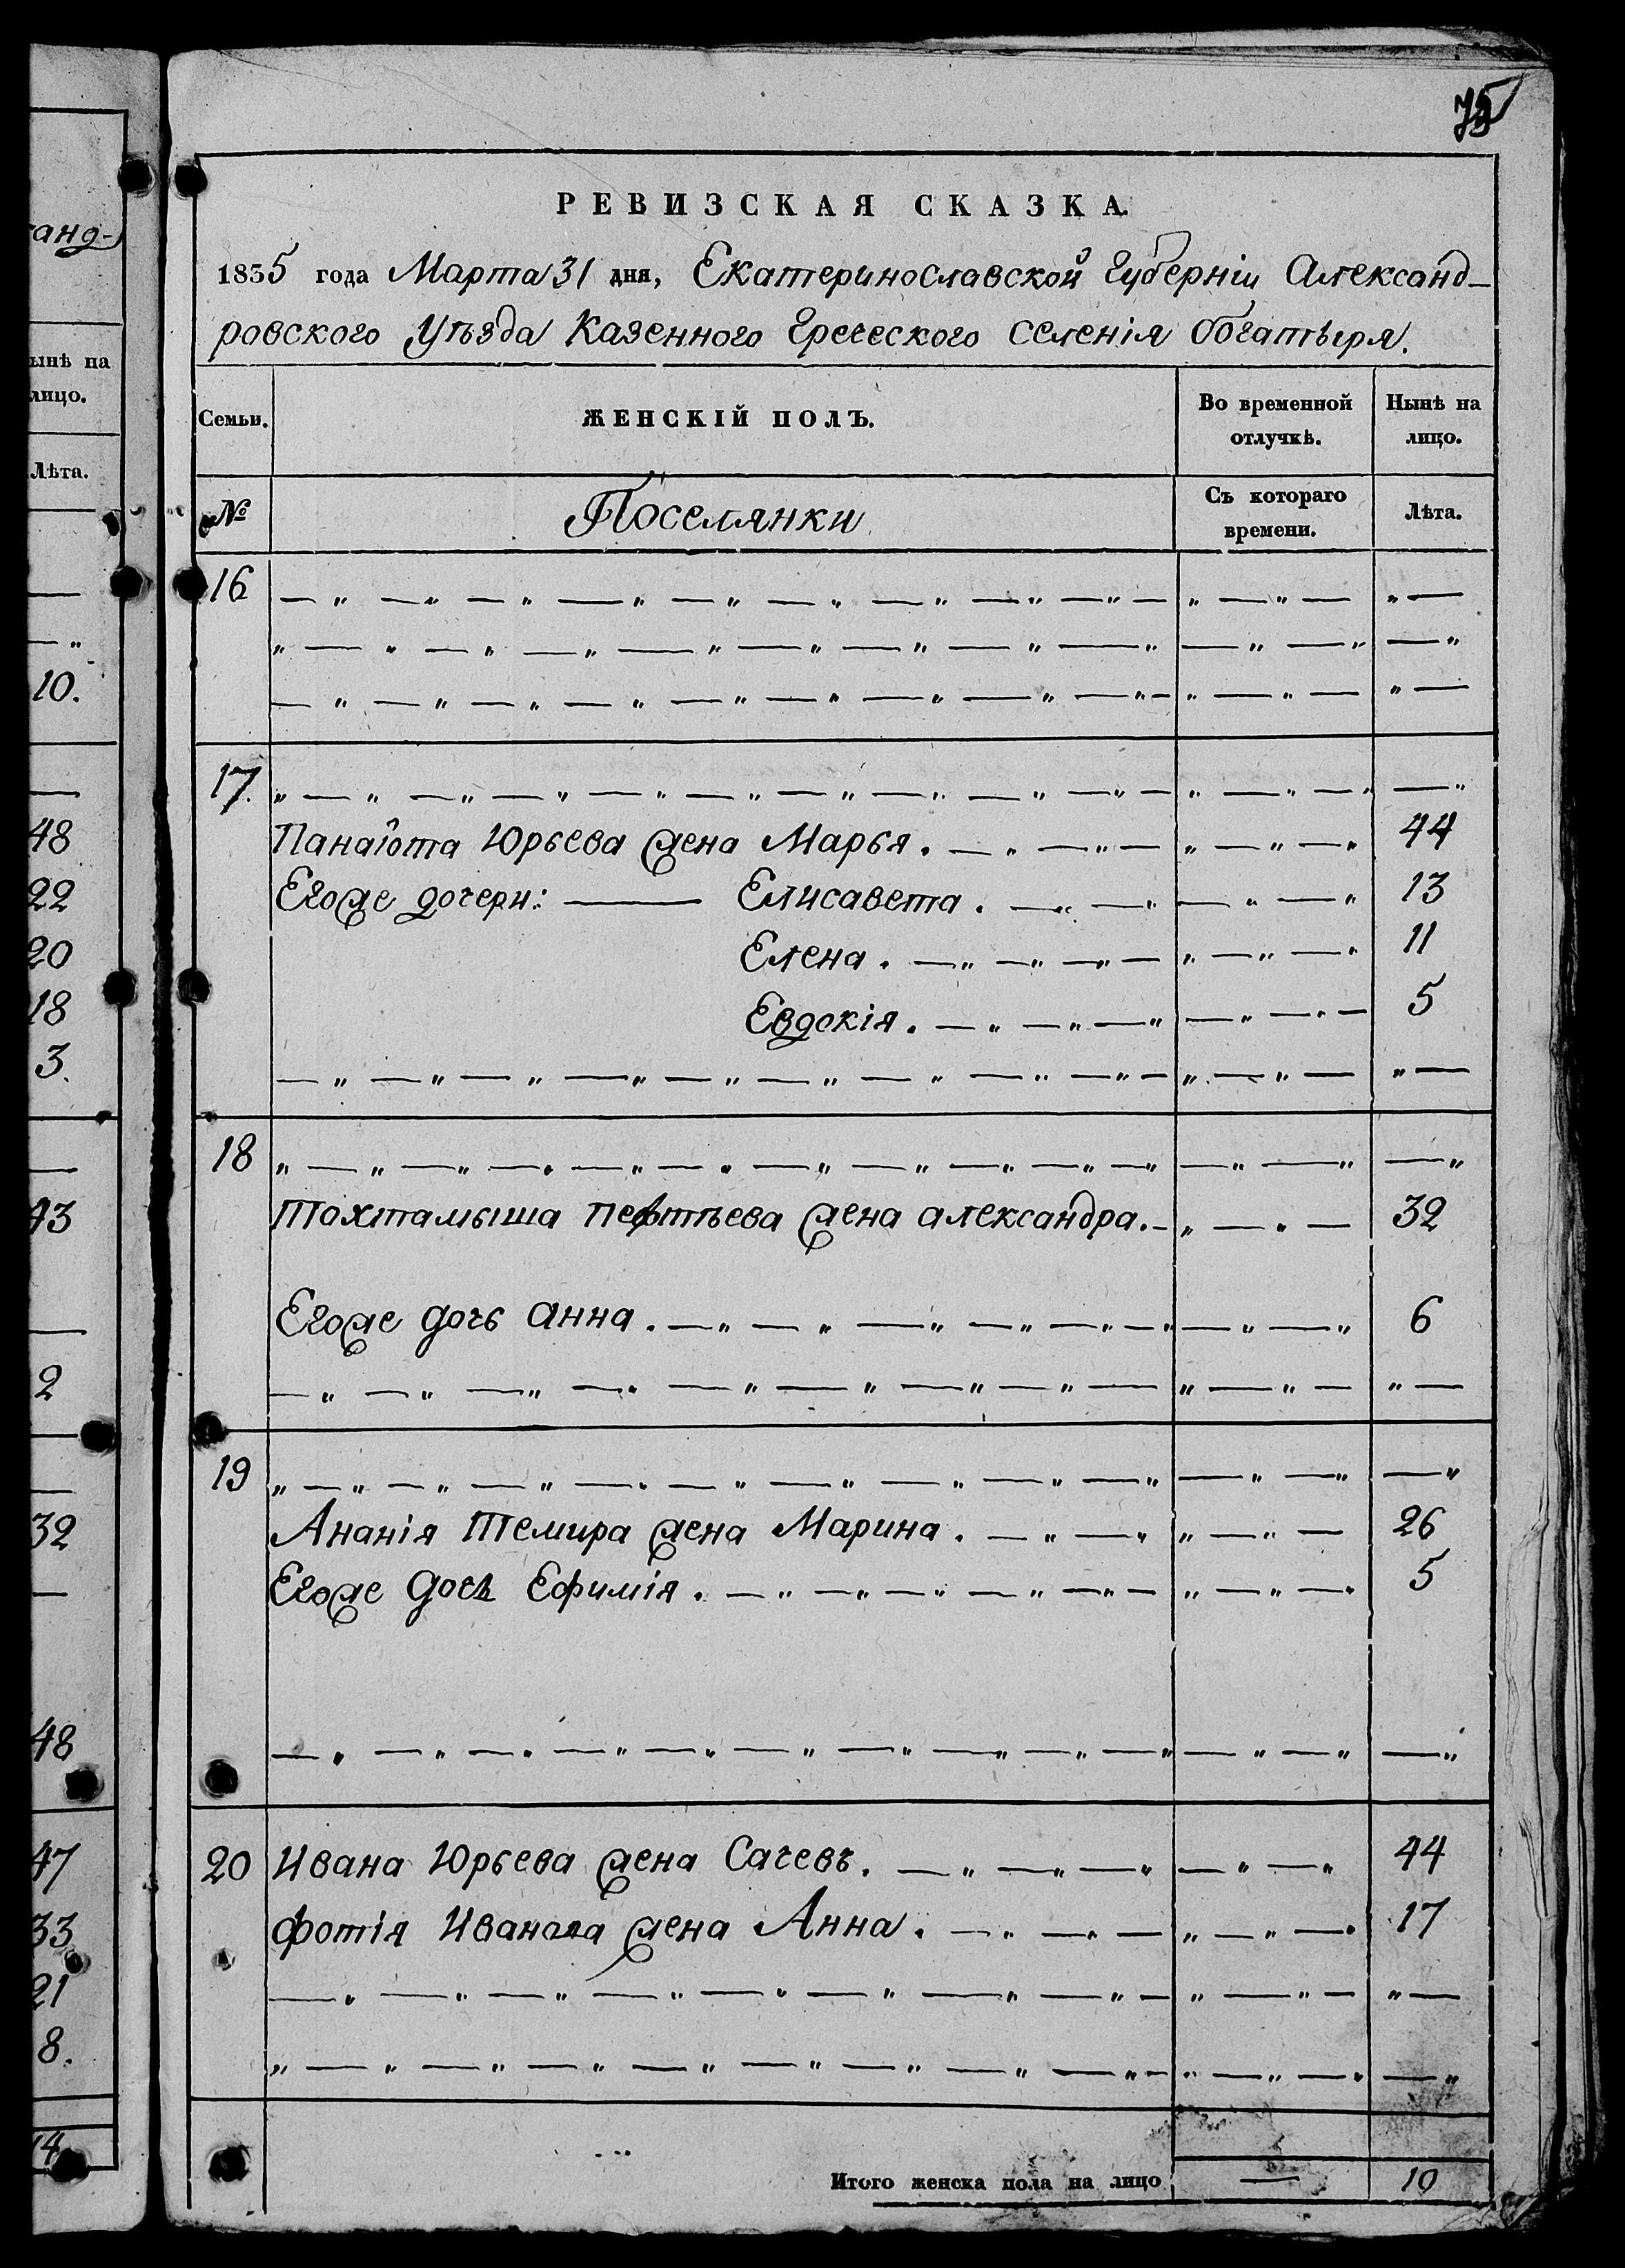 анд-
ынѣ на
лицо.
Лѣта.
10.
48
22
20
18
3.
43
2
32
48
47
33
21
8.
14
75
РЕВИЗСКАЯ СКАЗКА.
1835 года Марта 31 дня, Екатеринославской Губерніи Александ-
ровского Уѣзда Казенного Греческого селенія Богатыря.
Семьи. ЖЕНСКІЙ ПОЛЪ. Во временной отлучкѣ. Нынѣ на лицо.
№ Поселянки Съ котораго времени. Лѣта.
16
17.
Панаіота Юрьева жена Марья. 44
Егоже дочери: Елисавета. 13
Елена. 11
Евдокія. 5
18
Тохтамыша Пефтѣева жена александра. 32
Егоже дочь анна. 6
19
Ананія Темира жена Марина. 26
Егоже дочь Ефимія. 5
20 Ивана Юрьева жена Сачевъ. 44
Фотія Иванова жена Анна. 17
Итого женска пола на лицо — 10